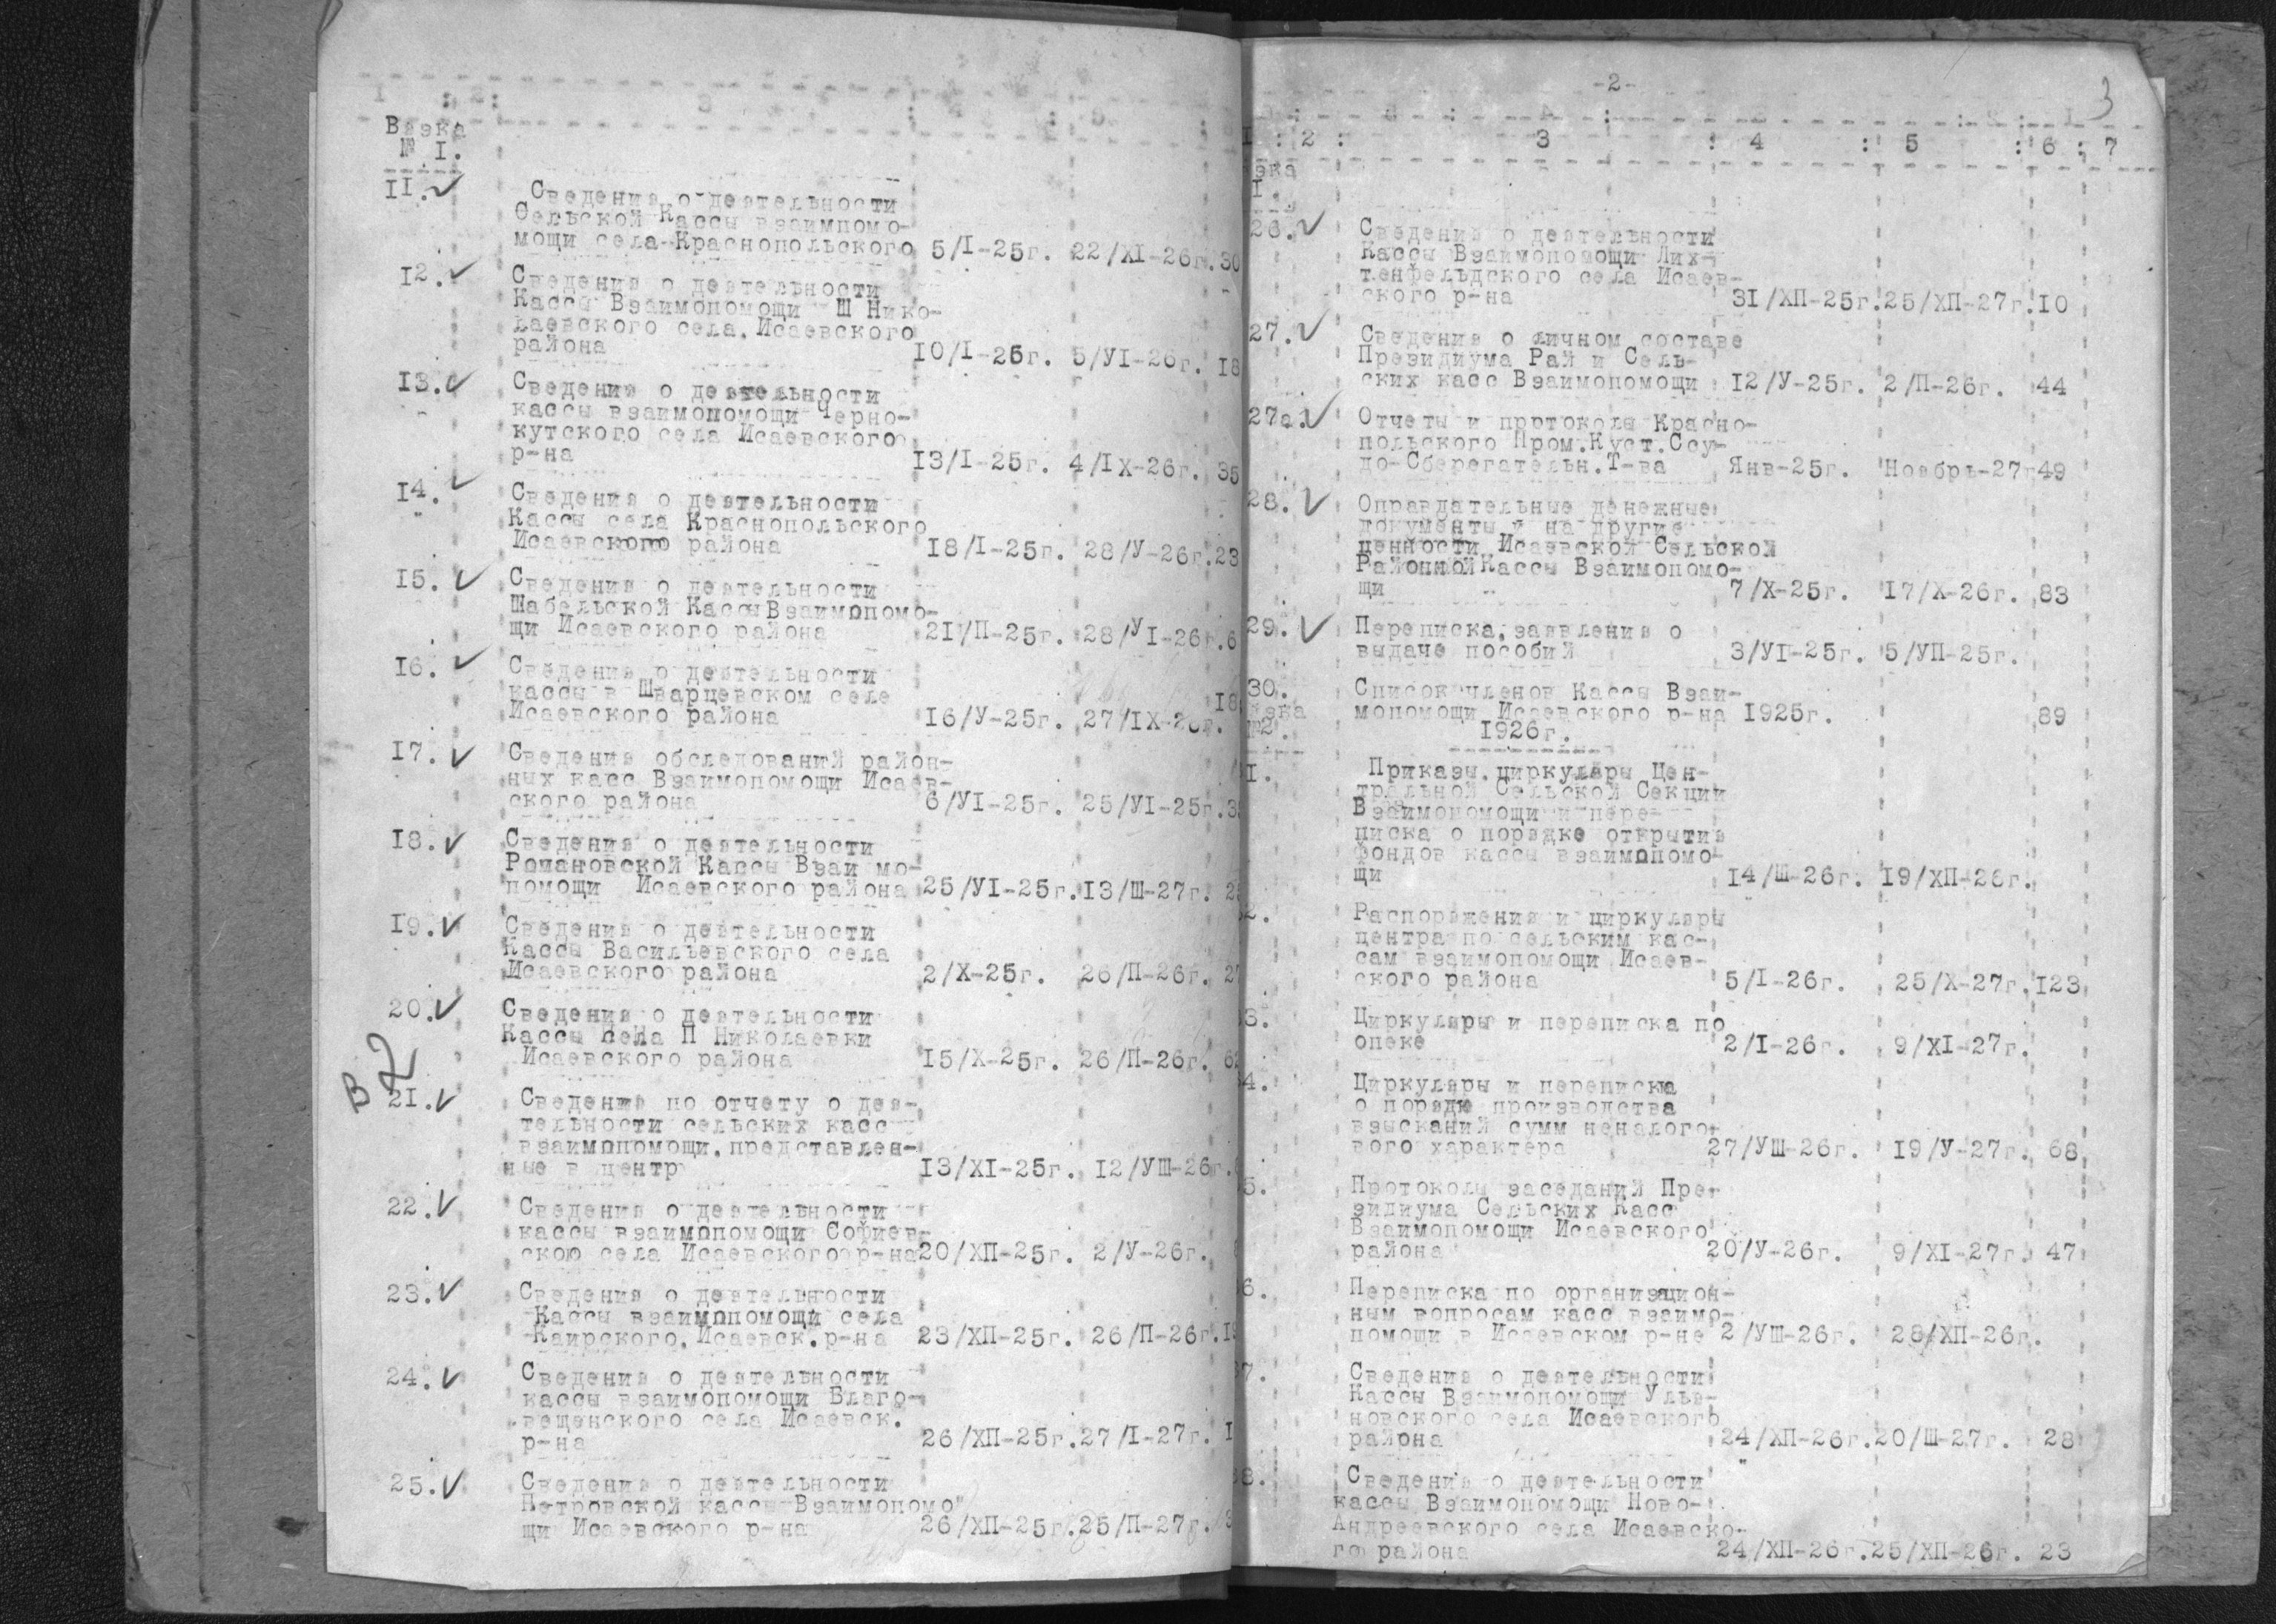 I : 2: 3 4 : 5 :
Вязка
№ I.
II. Сведения о деятельности
Сельской Кассы взаимпомо-
мощи села Краснопольского 5/I-25г. 22/XI-26г. 30
I2. Сведения о деятельности
Кассы Взаимопомощи Ш Нико-
лаевского села, Исаевского
района I0/I-26г. 5/УI-26г. I8
I3. Сведения о деятельности
кассы взаимопомощи Черно-
кутского села Исаевского
р-на I3/I-25г. 4/IX-26г. 35
I4. Сведения о деятельности
Кассы села Краснопольского
Исаевского района I8/I-25г. 28/У-26г. 23
I5. Сведения о деятельности
Шабельской Кассы Взаимопомо-
щи Исаевского района 2I/П-25г. 28/УI-26г. 6
I6. Сведения о деятельности
кассы в Шварцевском селе
Исаевского района I6/У-25г. 27/IX-26г. I8
I7. Сведения обследований район-
ных касс Взаимопомощи Исаев-
ского района 6/УI-25г. 25/УI-25г. 3
I8. Сведения о деятельности
Романовской Кассы Взаи мо-
помощи Исаевского района 25/УI-25г. I3/Ш-27г. 2
I9. Сведения о деятельности
Кассы Васильевского села
Исаевского района 2/X-25г. 26/П-26г. 27
20. Сведения о деятельности
Кассы села П Николаевки
Исаевского района I5/X-25г. 26/П-26г. 6
В 2
2I. Сведения по отчету о дея-
тельности сельских касс
взаимопомощи, представлен-
ные в центр I3/XI-25г. I2/УШ-26г.
22. Сведения о деятельности
кассы взаимопомощи Софиев-
скою села Исаевского р-на 20/ХП-25г. 2/У-26г.
23. Сведения о деятельности
Кассы взаимопомощи села
Каирского, Исаевск. р-на 23/ХП-25г. 26/П-26г. I9
24. Сведения о деятельности
кассы взаимопомощи Благо-
вещенского села Исаевск.
р-на 26/ХП-25г. 27/I-27г. I
25. Сведения о деятельности
Петровской кассы Взаимопомо"
щи Исаевского р-на 26/ХП-25г. 25/П-27г. 3
-2- 3
I : 2 : 3 : 4 : 5 : 6 : 7
зка
I.
26. Сведения о деятельности
Кассы Взаимопомощи Лих-
тенфельдского села Исаев-
ского р-на 3I/ХП-25г. 25/ХП-27г. I0
27. Сведения о личном составе
Президиума Рай и Сель-
ских касс Взаимопомощи I2/У-25г. 2/П-26г. 44
27а. Отчеты и протоколы Красно-
польского Пром.Куст.Ссу-
до-Сберегательн.Т-ва Янв-25г. Ноябрь-27г 49
28. Оправдательные денежные
документы и на другие
ценности Исаевской Сельской
Районной Кассы Взаимопомо-
щи 7/X-25г. I7/X-26г. 83
29. Переписка, заявления о
выдаче пособий 3/УI-25г. 5/УП-25г.
30. Список членов Кассы Взаи-
зка мопомощи Исаевского р-на I925г. 89
№2. I926г.
I. Приказы, циркуляры Цен-
тральной Сельской Секции
Взаимопомощи и пере-
писка о порядке открытия
фондов кассы взаимопомо-
щи I4/Ш-26г. I9/ХП-26г.
2. Распоряжения и циркуляры
центра по сельским кас-
сам взаимопомощи Исаев-
ского района 5/I-26г. 25/X-27г. I23
3. Циркуляры и переписка по
опеке 2/I-26г. 9/XI-27г.
4. Циркуляры и переписка
о порядке производства
взысканий сумм неналого-
вого характера 27/УШ-26г. I9/У-27г. 68
5. Протоколы заседаний Пре-
зидиума Сельских Касс
Взаимопомощи Исаевского
района 20/У-26г. 9/XI-27г. 47
6. Переписка по организацион-
ным вопросам касс взаимо-
помощи в Исаевском р-не 2/УШ-26г. 28/ХП-26г.
7. Сведения о деятельности
Кассы Взаимопомощи Улья-
новского села Исаевского
района 24/ХП-26г. 20/Ш-27г. 28
8. Сведения о деятельности
кассы Взаимопомощи Ново-
Андреевского села Исаевско-
го района 24/ХП-26г. 25/ХП-26г. 23